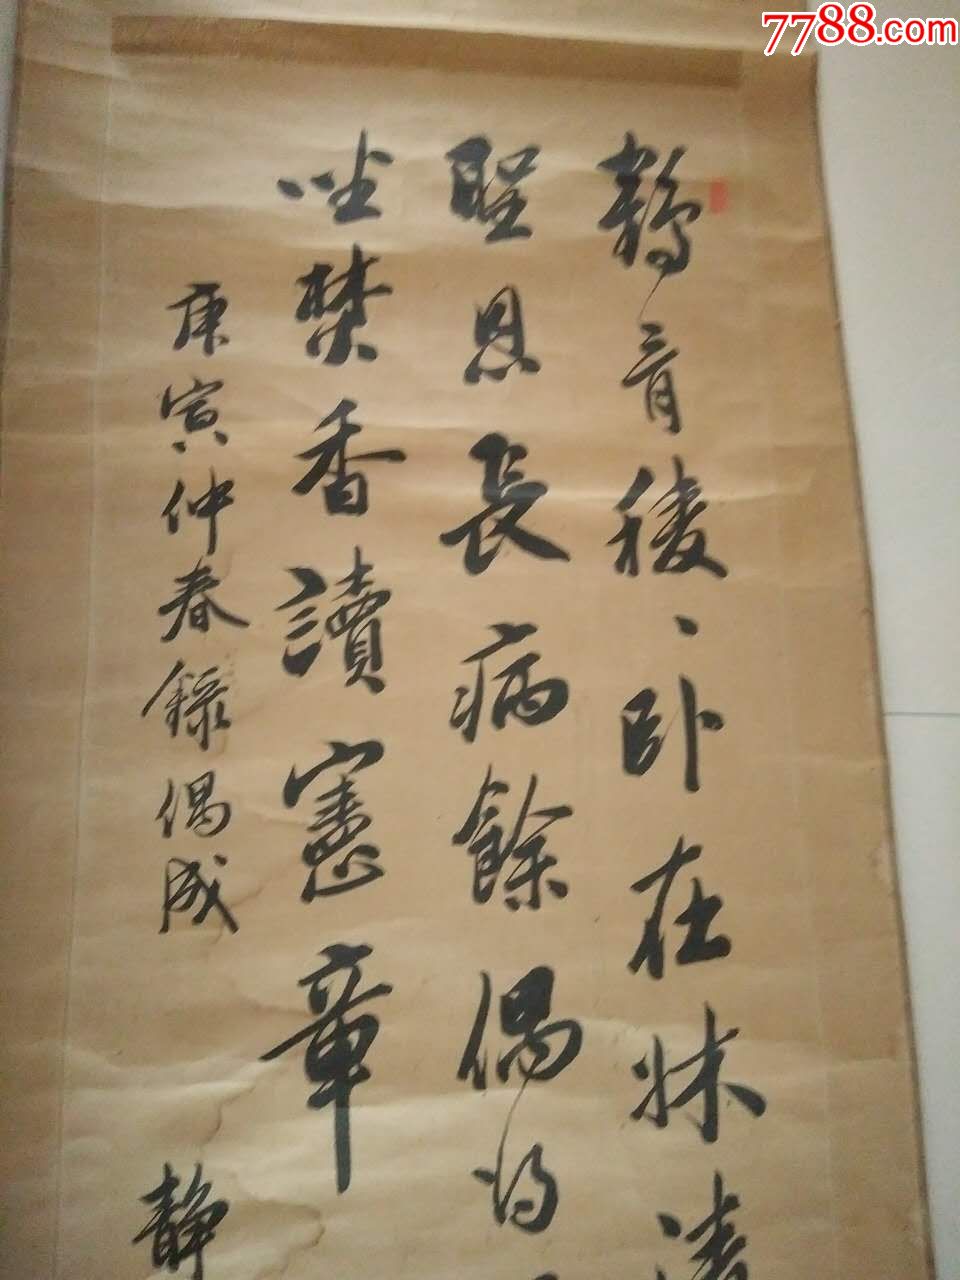 7788.com
鶴脊稜、卧在牀清
聖恩長病餘偶得
坐焚香讀憲章
庚寅仲春錄偶成
靜